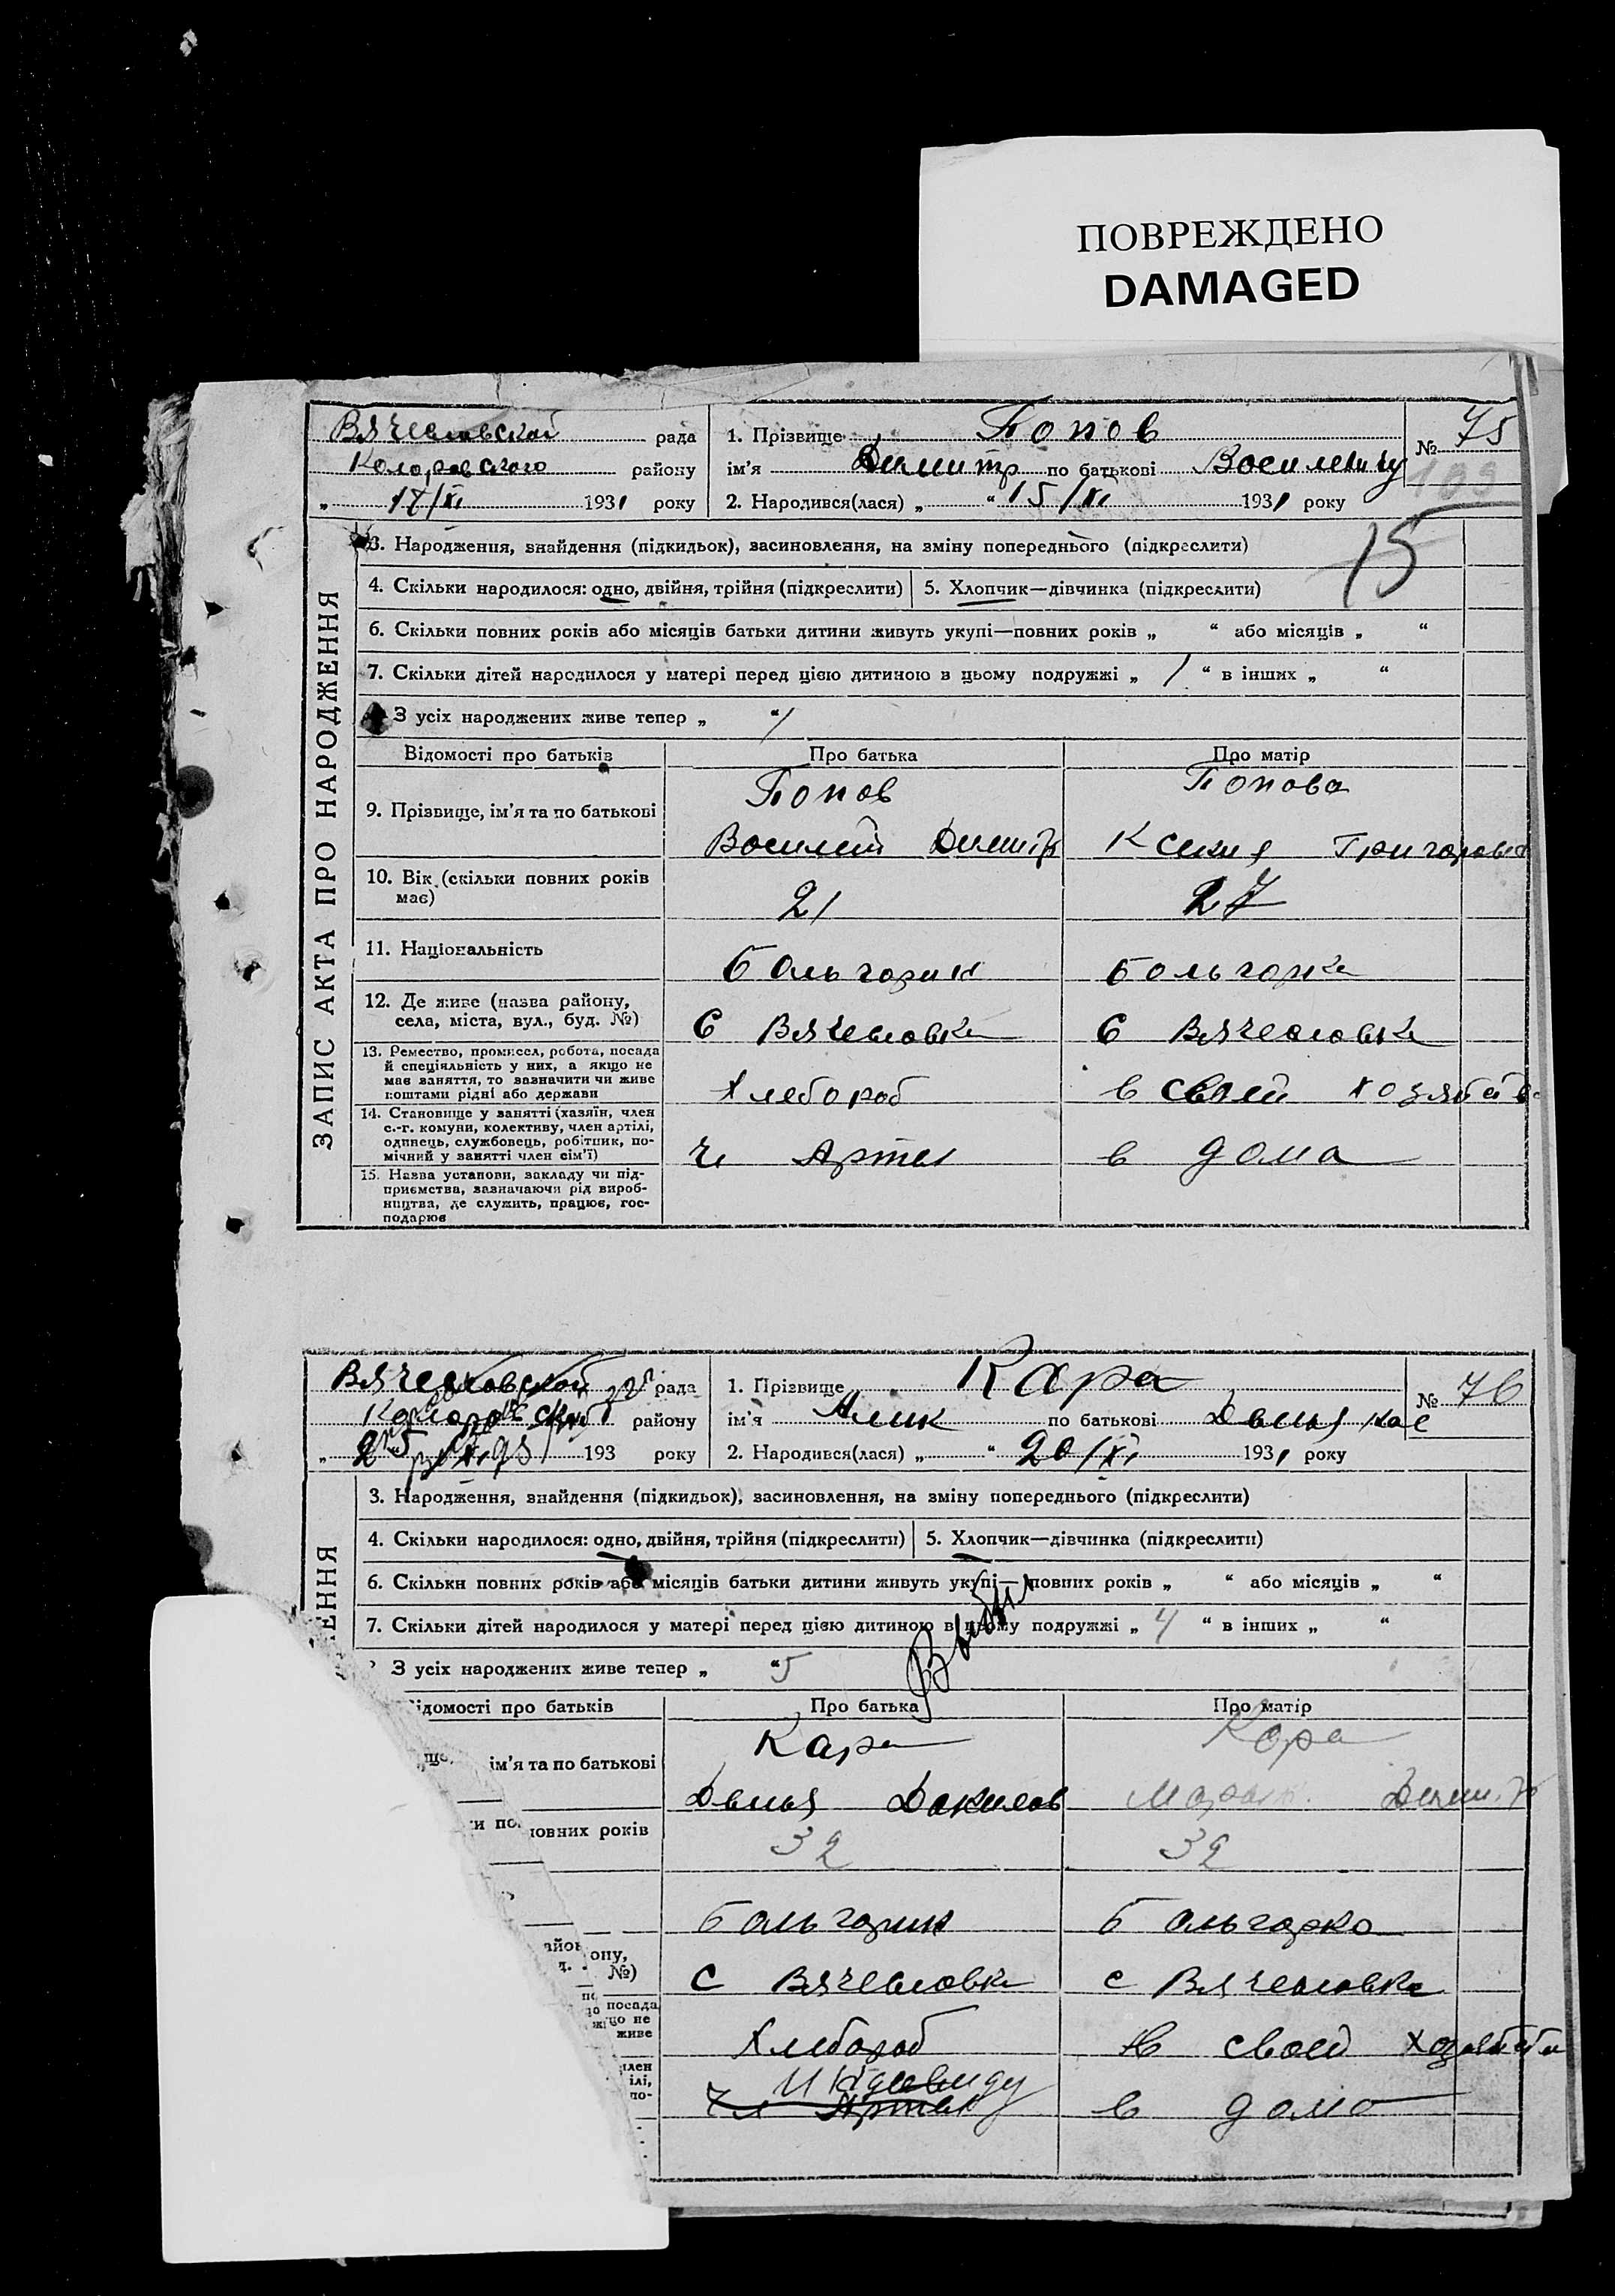 ПОВРЕЖДЕНО
DAMAGED
Вячеславской рада
Коларовского району
„ 17/XI 1931 року
1. Прізвище Попов
ім'я Димитр по батькові Василевичу
2. Народився(лася) „ “ 15/XI 1931 року
№ 75
109
15
ЗАПИС АКТА ПРО НАРОДЖЕННЯ
3. Народження, знайдення (підкидьок), засиновлення, на зміну попереднього (підкреслити)
4. Скільки народилося: одно, двійня, трійня (підкреслити) 5. Хлопчик—дівчинка (підкреслити)
6. Скільки повних років або місяців батьки дитини живуть укупі—повних років „ “ або місяців „ “
7. Скільки дітей народилося у матері перед цією дитиною в цьому подружжі „ 1 “ в інших „ “
З усіх народжених живе тепер „ “ 1
Відомості про батьків Про батька Про матір
9. Прізвище, ім'я та по батькові
Попов Попова
Василий Димитр Ксения Григоровна
10. Вік (скільки повних років
має)
21 27
11. Національність
болгарин болгарка
12. Де живе (назва району,
села, міста, вул., буд. №)
С Вячеславка С Вячеславка
13. Ремество, промисел, робота, посада
й спеціяльність у них, а якщо не
має заняття, то зазначити чи живе
коштами рідні або держави
Хлебороб в своей хозяйств
14. Становище у занятті (хазяїн, член
с.-г. комуни, колективу, член артілі,
одинець, службовець, робітник, по-
мічний у занятті член сім'ї)
Чл Артел в дома
15. Назва установи, закладу чи під-
приємства, зазначаючи рід вироб-
ництва, де служить, працює, гос-
подарює
Вячеславской рада
Коларовский району
„ 25/XI 193 року
1. Прізвище Кара
ім'я Алик по батькові
2. Народився(лася) „ “ 20/XI 1931 року
№ 76
ЕННЯ
3. Народження, знайдення (підкидьок), засиновлення, на зміну попереднього (підкреслити)
4. Скільки народилося: одно, двійня, трійня (підкреслити) 5. Хлопчик—дівчинка (підкреслити)
6. Скільки повних років або місяців батьки дитини живуть укупі—повних років „ “ або місяців „ “
7. Скільки дітей народилося у матері перед цією дитиною в цьому подружжі „ 4 “ в інших „ “
З усіх народжених живе тепер „ “ 5
Выбыл
ідомості про батьків Про батька Про матір
ім'я та по батькові
Кара Кара
Данилов Димитр
овних років
32 32
болгарин болгарка
ону,
№)
с Вячеславка с Вячеславка
посада
що не
живе
Хлебороб в своей хозяйств
член
ілі,
по-
Индивиду
чл Артел в дома